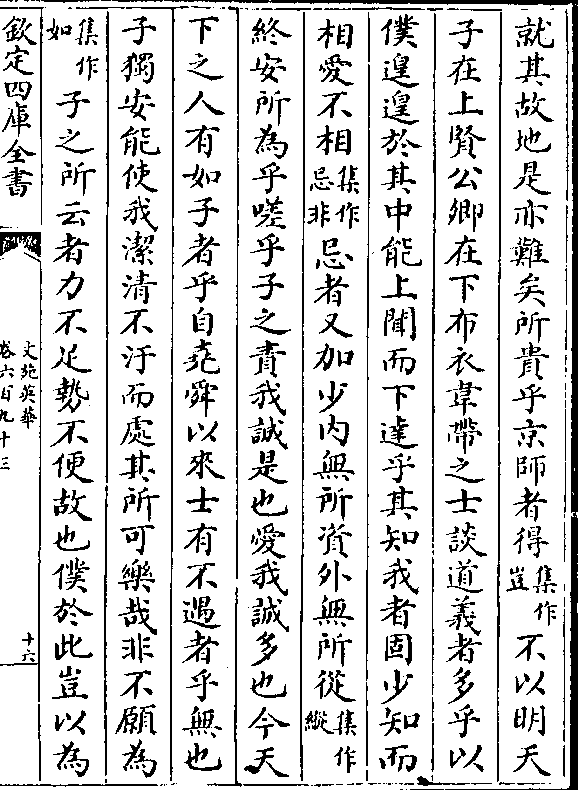 就其故地是亦難矣所貴乎京師者得集作豈不以明天
子在上賢公卿在下布衣韋帶之士談道義者多乎以
僕遑遑於其中能上聞而下達乎其知我者固少知而
相愛不相集作忌非忌者又加少内無所資外無所從集作縱
終安所為乎嗟乎子之責我誠是也愛我誠多也今天
下之人有如子者乎自堯舜以來士有不遇者乎無也
子獨安能使我潔清不汙而處其所可樂哉非不願為
集作如子之所云者力不足勢不便故也僕於此豈以為
欽定四庫全書
文苑英華
卷六百九十三
十六